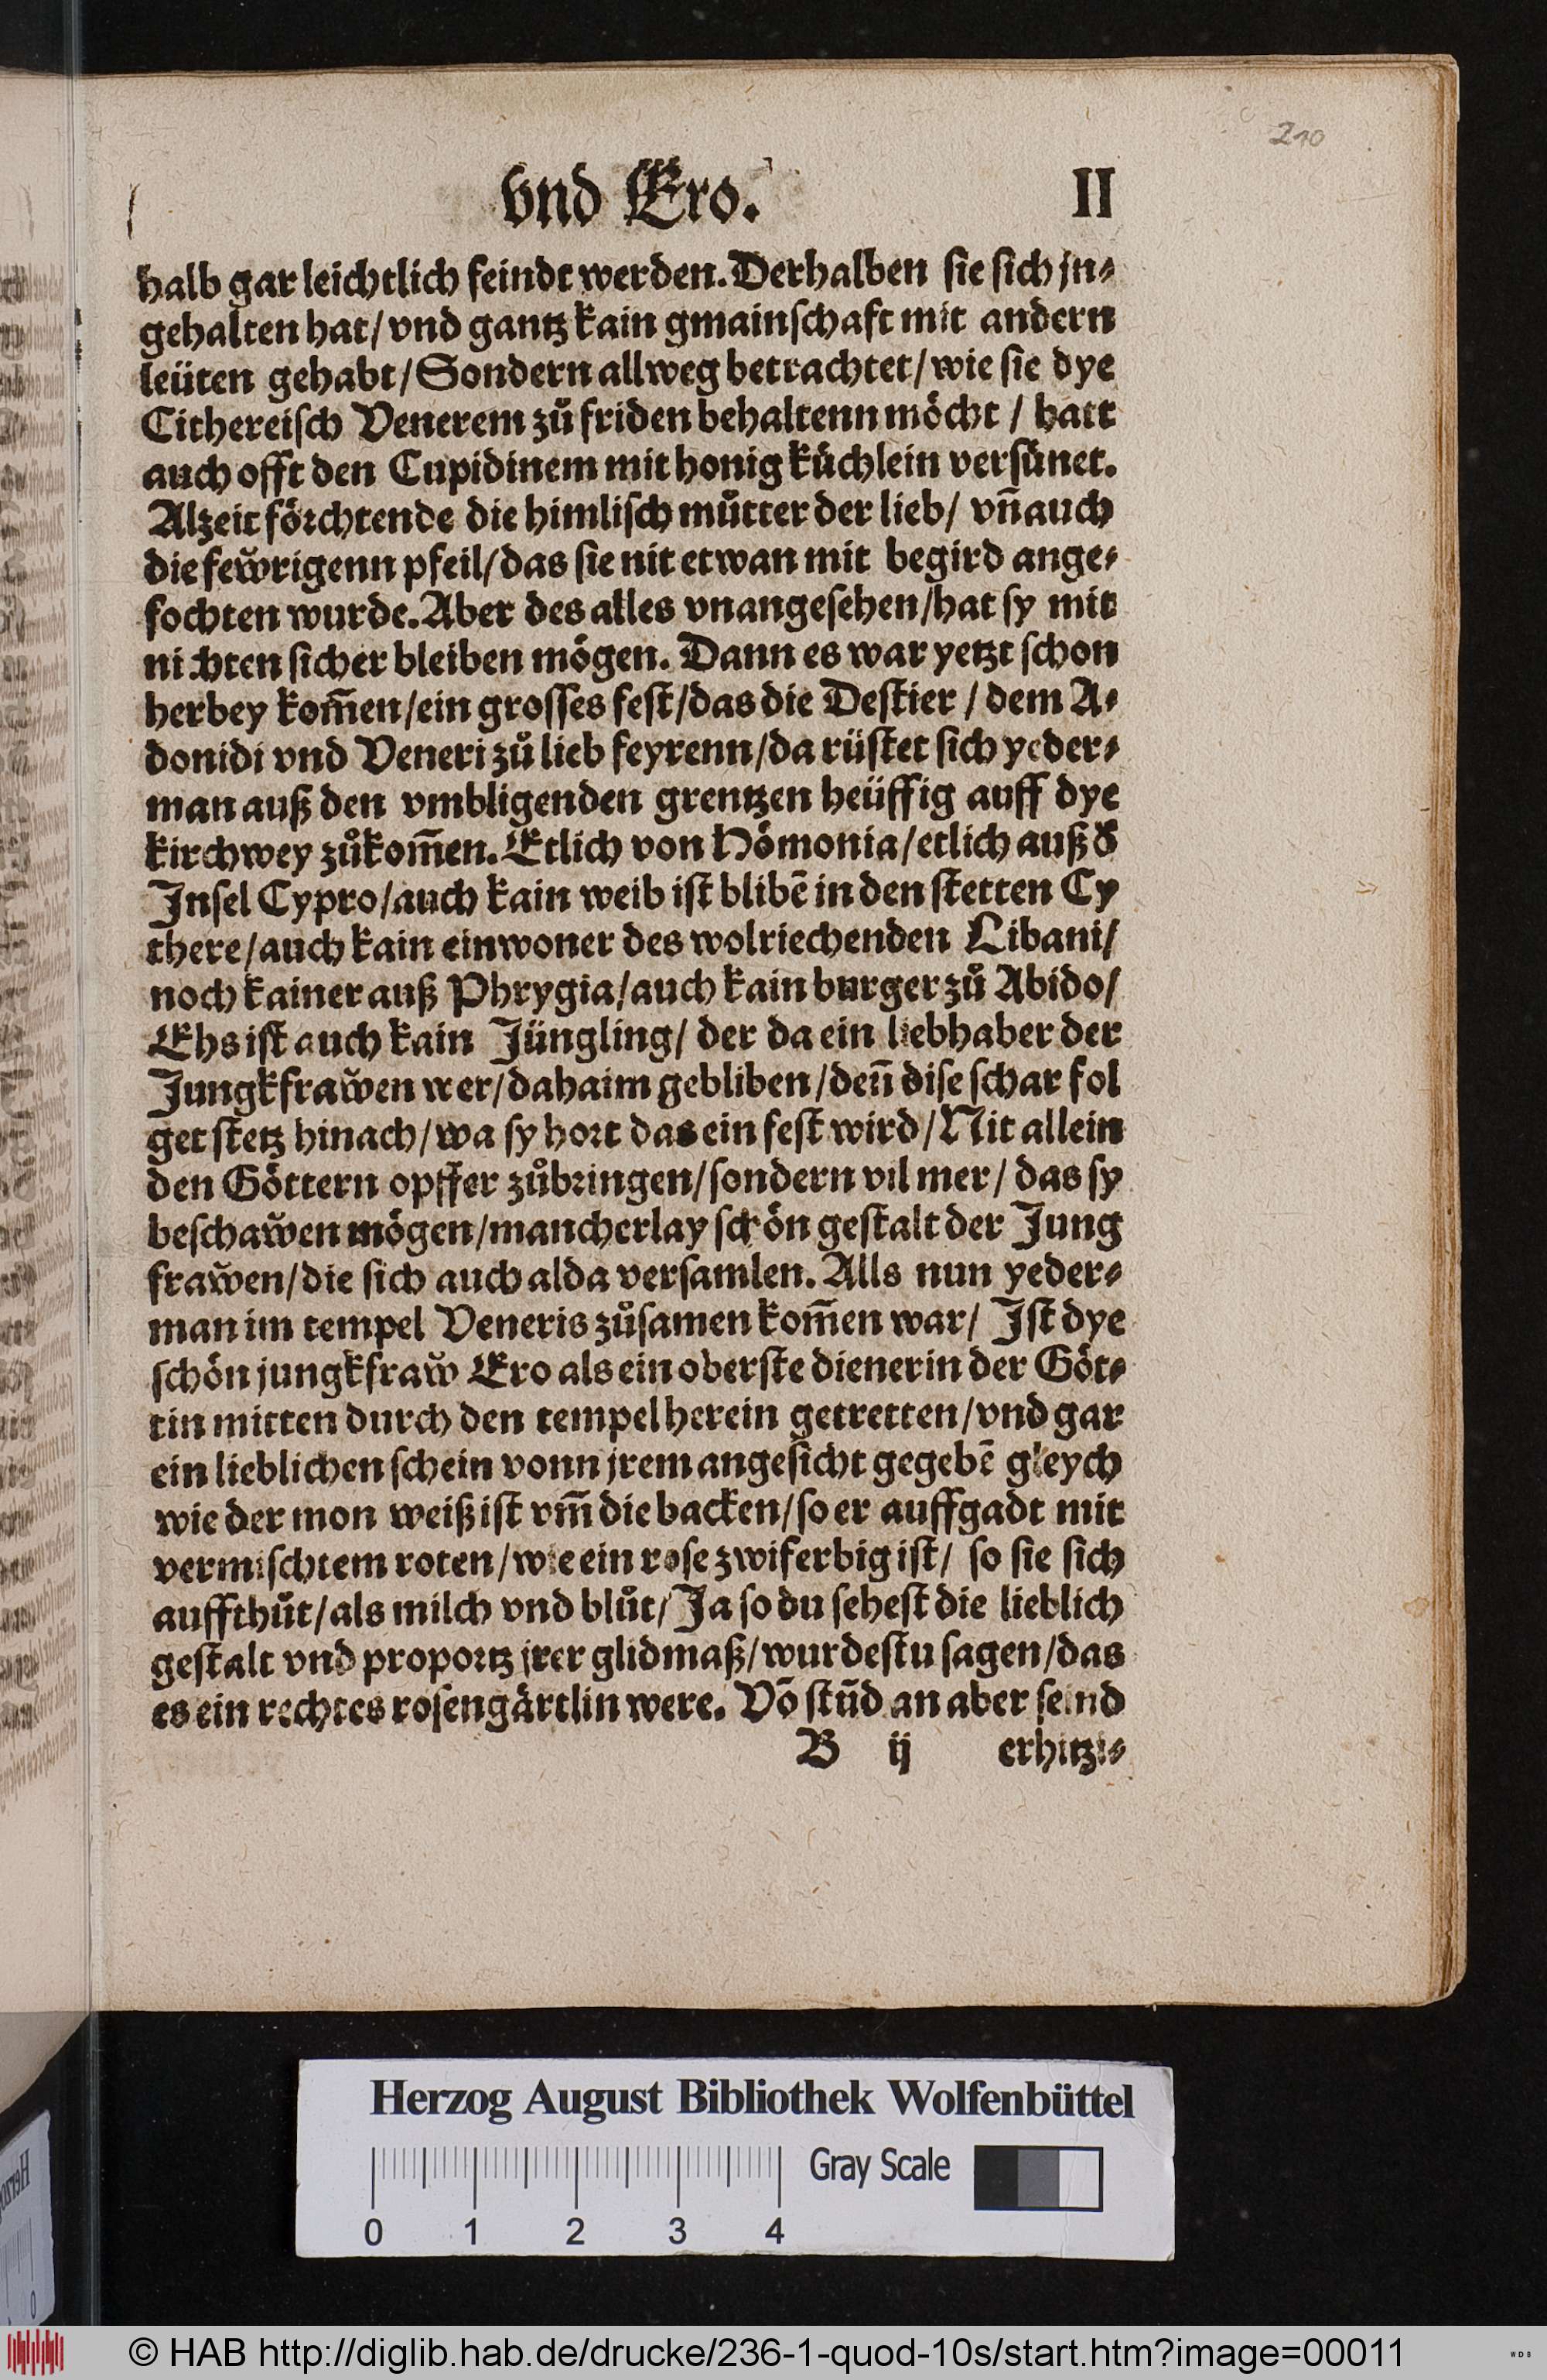 210
vnd Ero. II
halb gar leichtlich feindt werden. Derhalben sie sich jn⸗
gehalten hat/ vnd gantz kain gmainschaft mit andern
leüten gehabt/ Sondern allweg betrachtet/ wie sie dye
Cithereisch Venerem zů friden behaltenn möcht / hatt
auch offt den Cupidinem mit honig küchlein versünet.
Alzeit förchtende die himlisch můtter der lieb/ vñ auch
die few̆rigenn pfeil/ das sie nit etwan mit begird ange⸗
fochten wurde. Aber des alles vnangesehen/ hat sy mit
nichten sicher bleiben mögen. Dann es war yetzt schon
herbey kom̄en/ ein grosses fest/ das die Destier / dem A⸗
donidi vnd Veneri zů lieb feyrenn/ da rüstet sich yeder⸗
man auß den vmbligenden grentzen heüffig auff dye
kirchwey zůkom̄en. Etlich von Hömonia/ etlich auß d̕
Insel Cypro/ auch kain weib ist blibē in den stetten Cy
there/ auch kain einwoner des wolriechenden Libani/
noch kainer auß Phrygia/ auch kain burger zů Abido/
Ehs ist auch kain Jüngling/ der da ein liebhaber der
Jungkfraw̆en wer/ dahaim gebliben / deñ dise schar fol
get stetz hinach/ wa sy hort das ein fest wird/ Nit allein
den Göttern opffer zůbringen/ sondern vil mer/ das sy
beschaw̆en mögen/ mancherlay schön gestalt der Jung
fraw̆en/ die sich auch alda versamlen. Alls nun yeder⸗
man im tempel Veneris zůsamen kom̄en war/ Ist dye
schön jungkfraw̆ Ero als ein oberste dienerin der Göt⸗
tin mitten durch den tempel herein getretten/ vnd gar
ein lieblichen schein vonn jrem angesicht gegebē gleych
wie der mon weiß ist vm̄ die backen/ so er auffgadt mit
vermischtem roten/ wie ein rose zwiferbig ist/ so sie sich
auffthůt/ als milch vnd blůt/ Ja so du sehest die lieblich
gestalt vnd proportz jrer glidmaß/ wurdestu sagen/ das
es ein rechtes rosengärtlin were. Vō stūd an aber seind
B ij erhitzi⸗
Herzog August Bibliothek Wolfenbüttel
Gray Scale
0 1 2 3 4
© HAB http://diglib.hab.de/drucke/236-1-quod-10s/start.htm?image=00011